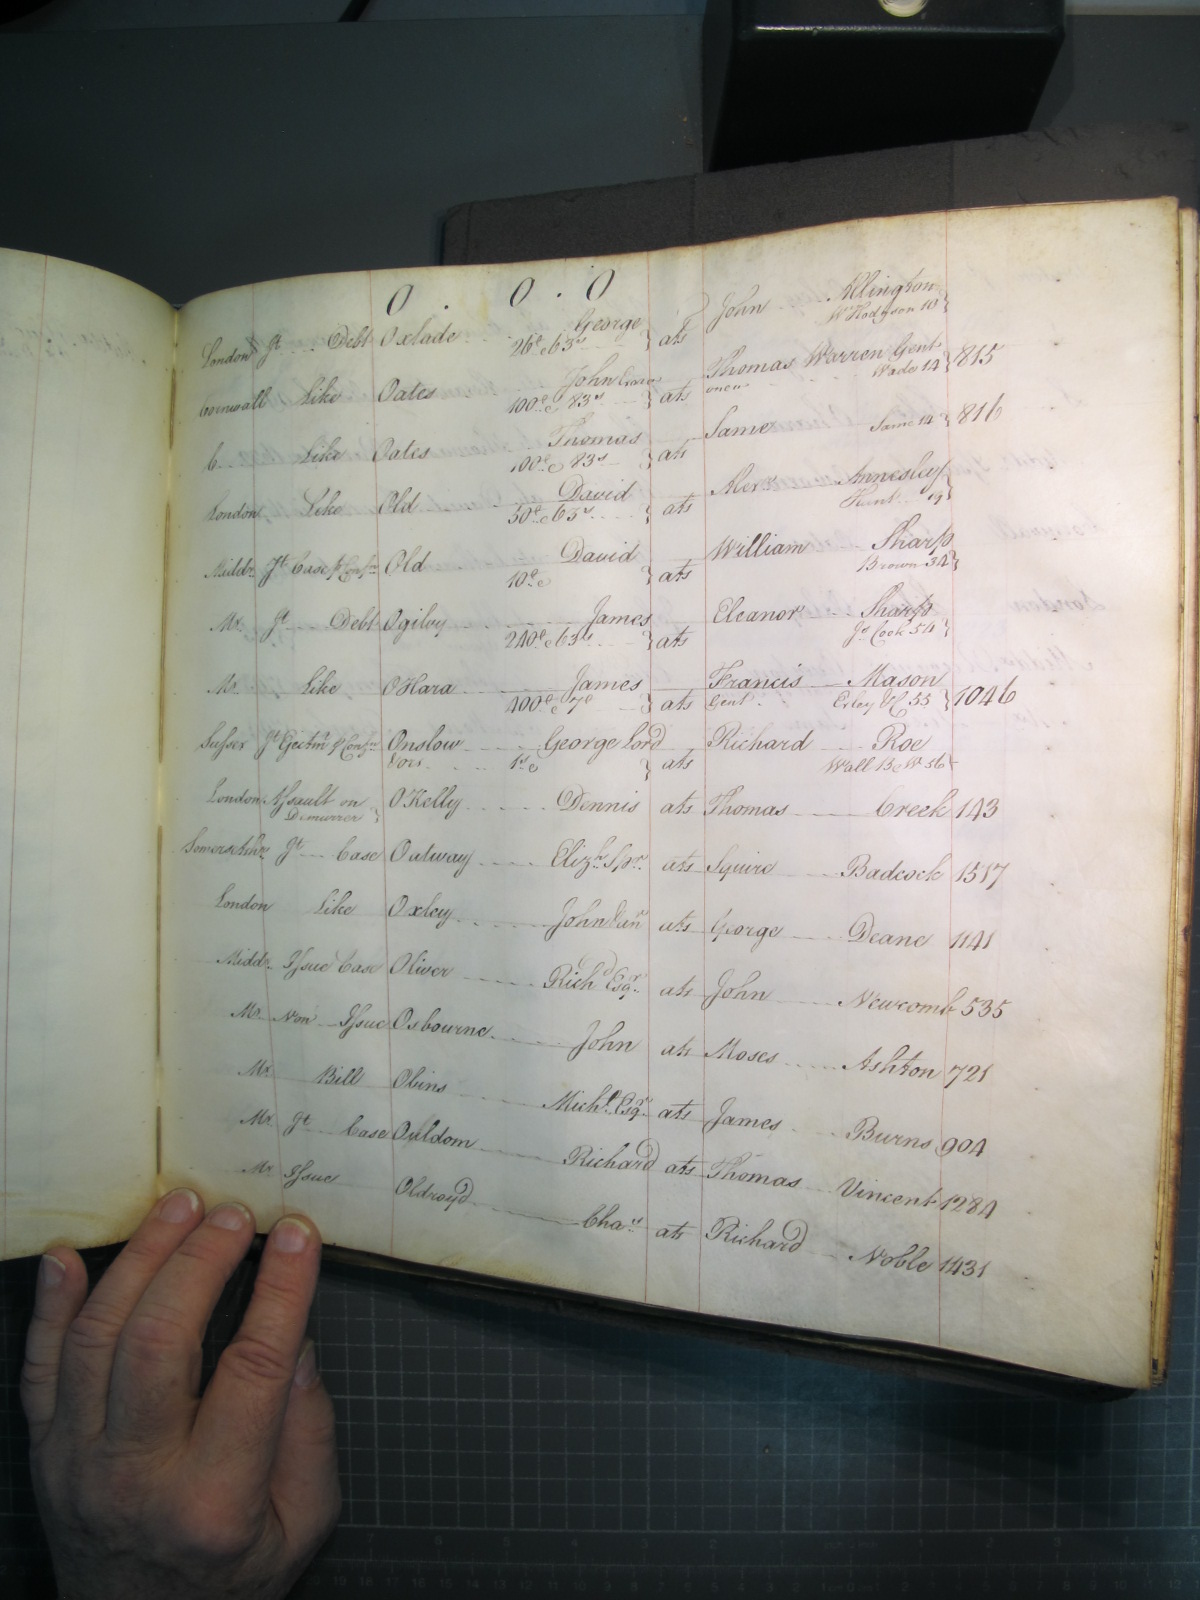 O . O . O
London Jt Debt Oxlade George ats John Allington
26£ & 63s W Hodgson 10
Cornwall Like Oates John ats Thomas Warren Gent 815
100£ & 83s Wade 14
C Like Oates Thomas ats Same 816
100£ & 83s Same 14
London Like Old David ats Alexr Annesley
50£ & 63s Hunt 19
Middx Jt Case p Confn Old David ats William Sharp
10£ Brown 34
Mx Jt Debt Ogilvy James ats Eleanor Sharp
240£ & 63s Js Cock 54
Mx Like OHara James ats Francis Mason 1046
400£ & 70 Gent Erley &C 55
Sussex Jt Gectmt p Confn Onslow George Lord ats Richard Roe
Vors 1s Wall B & W 56
London Assault on Demurrer O'Kelly Dennis ats Thomas Creek 143
Somersetshre Jt Case Oatway Elizh Spr ats Squire Badcock 1517
London Like Oxley John Junr ats George Deane 1141
Middx Issue Case Oliver Richd Esqr ats John Newcomb 535
Mx Non Issue Osbourne John ats Moses Ashton 721
Mx Bill Obins Michl Esqr ats James Burns 904
Mx Jt Case Ouldom Richard ats Thomas Vincent 1284
Mx Issue Oldroyd Chas ats Richard Noble 1431